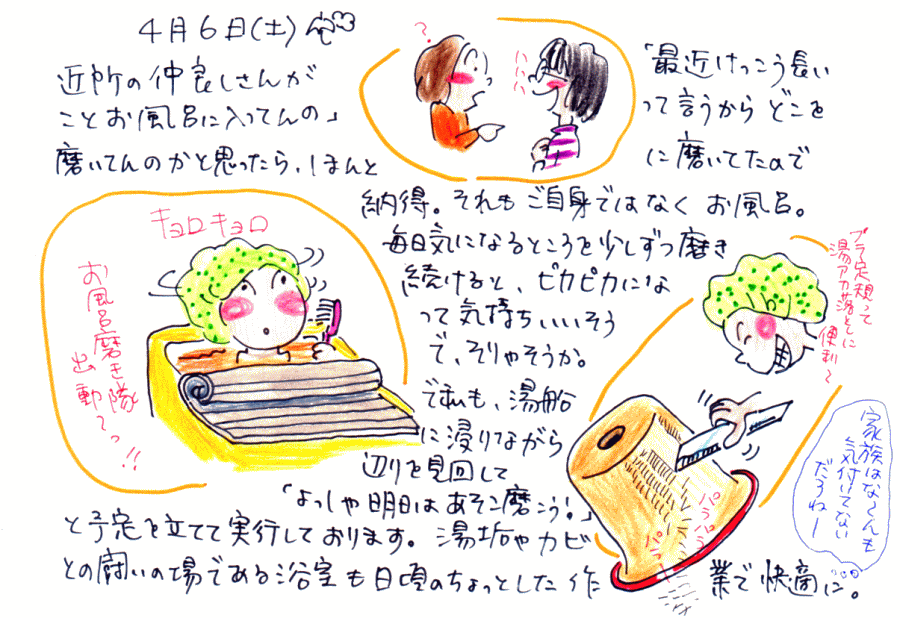 4月6日(土)
近所の仲良しさんが
「最近けっこう長い
ことお風呂に入ってんの」
って言うからどこを
磨いてんのかと思ったら、ほんと
に磨いてたので
納得。それもご自身ではなくお風呂。
毎日気になるところを少しずつ磨き
続けると、ピカピカにな
って気持ちいいそう
で、そりゃそうか。
で私も、湯船
に浸りながら
辺りを見回して
「よっしゃ明日はあそこ磨こう!」
と予定を立てて実行しております。湯垢やカビ
との闘いの場である浴室も日頃のちょっとした作業で快適に。
?
ハハハ
キョロキョロ
お風呂磨き隊
出動〜っ!!
プラ定規って
湯アカ落としに
便利〜
パラパラパラ
家族はなーんも
気付いてない
だろねー